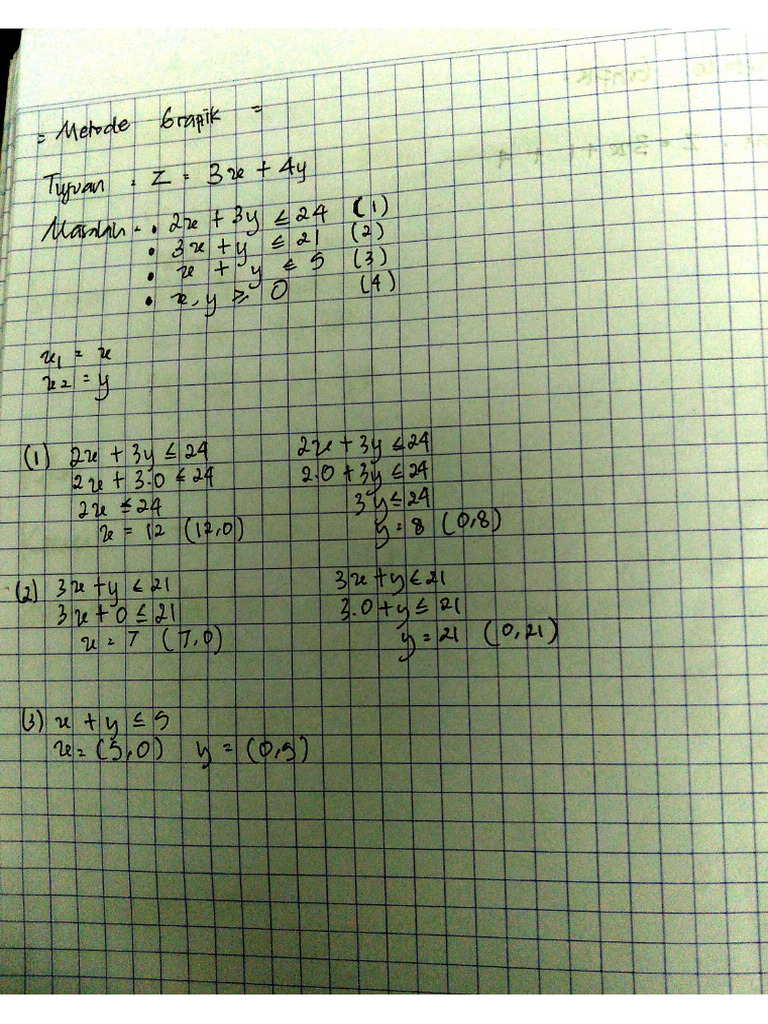 = Metode Grapik =
Tujuan = Z = 3x + 4y
Masalah - • 2x + 3y ≤ 24 (1)
• 3x + y ≤ 21 (2)
• x + y ≤ 5 (3)
• x, y ≥ 0 (4)
x1 = x
x2 = y
(1) 2x + 3y ≤ 24 2x + 3y ≤ 24
2x + 3.0 ≤ 24 2.0 + 3y ≤ 24
2x ≤ 24 3y ≤ 24
x = 12 (12,0) y = 8 (0,8)
(2) 3x + y ≤ 21 3x + y ≤ 21
3x + 0 ≤ 21 3.0 + y ≤ 21
x = 7 (7,0) y = 21 (0,21)
(3) x + y ≤ 5
x = (5,0) y = (0,5)